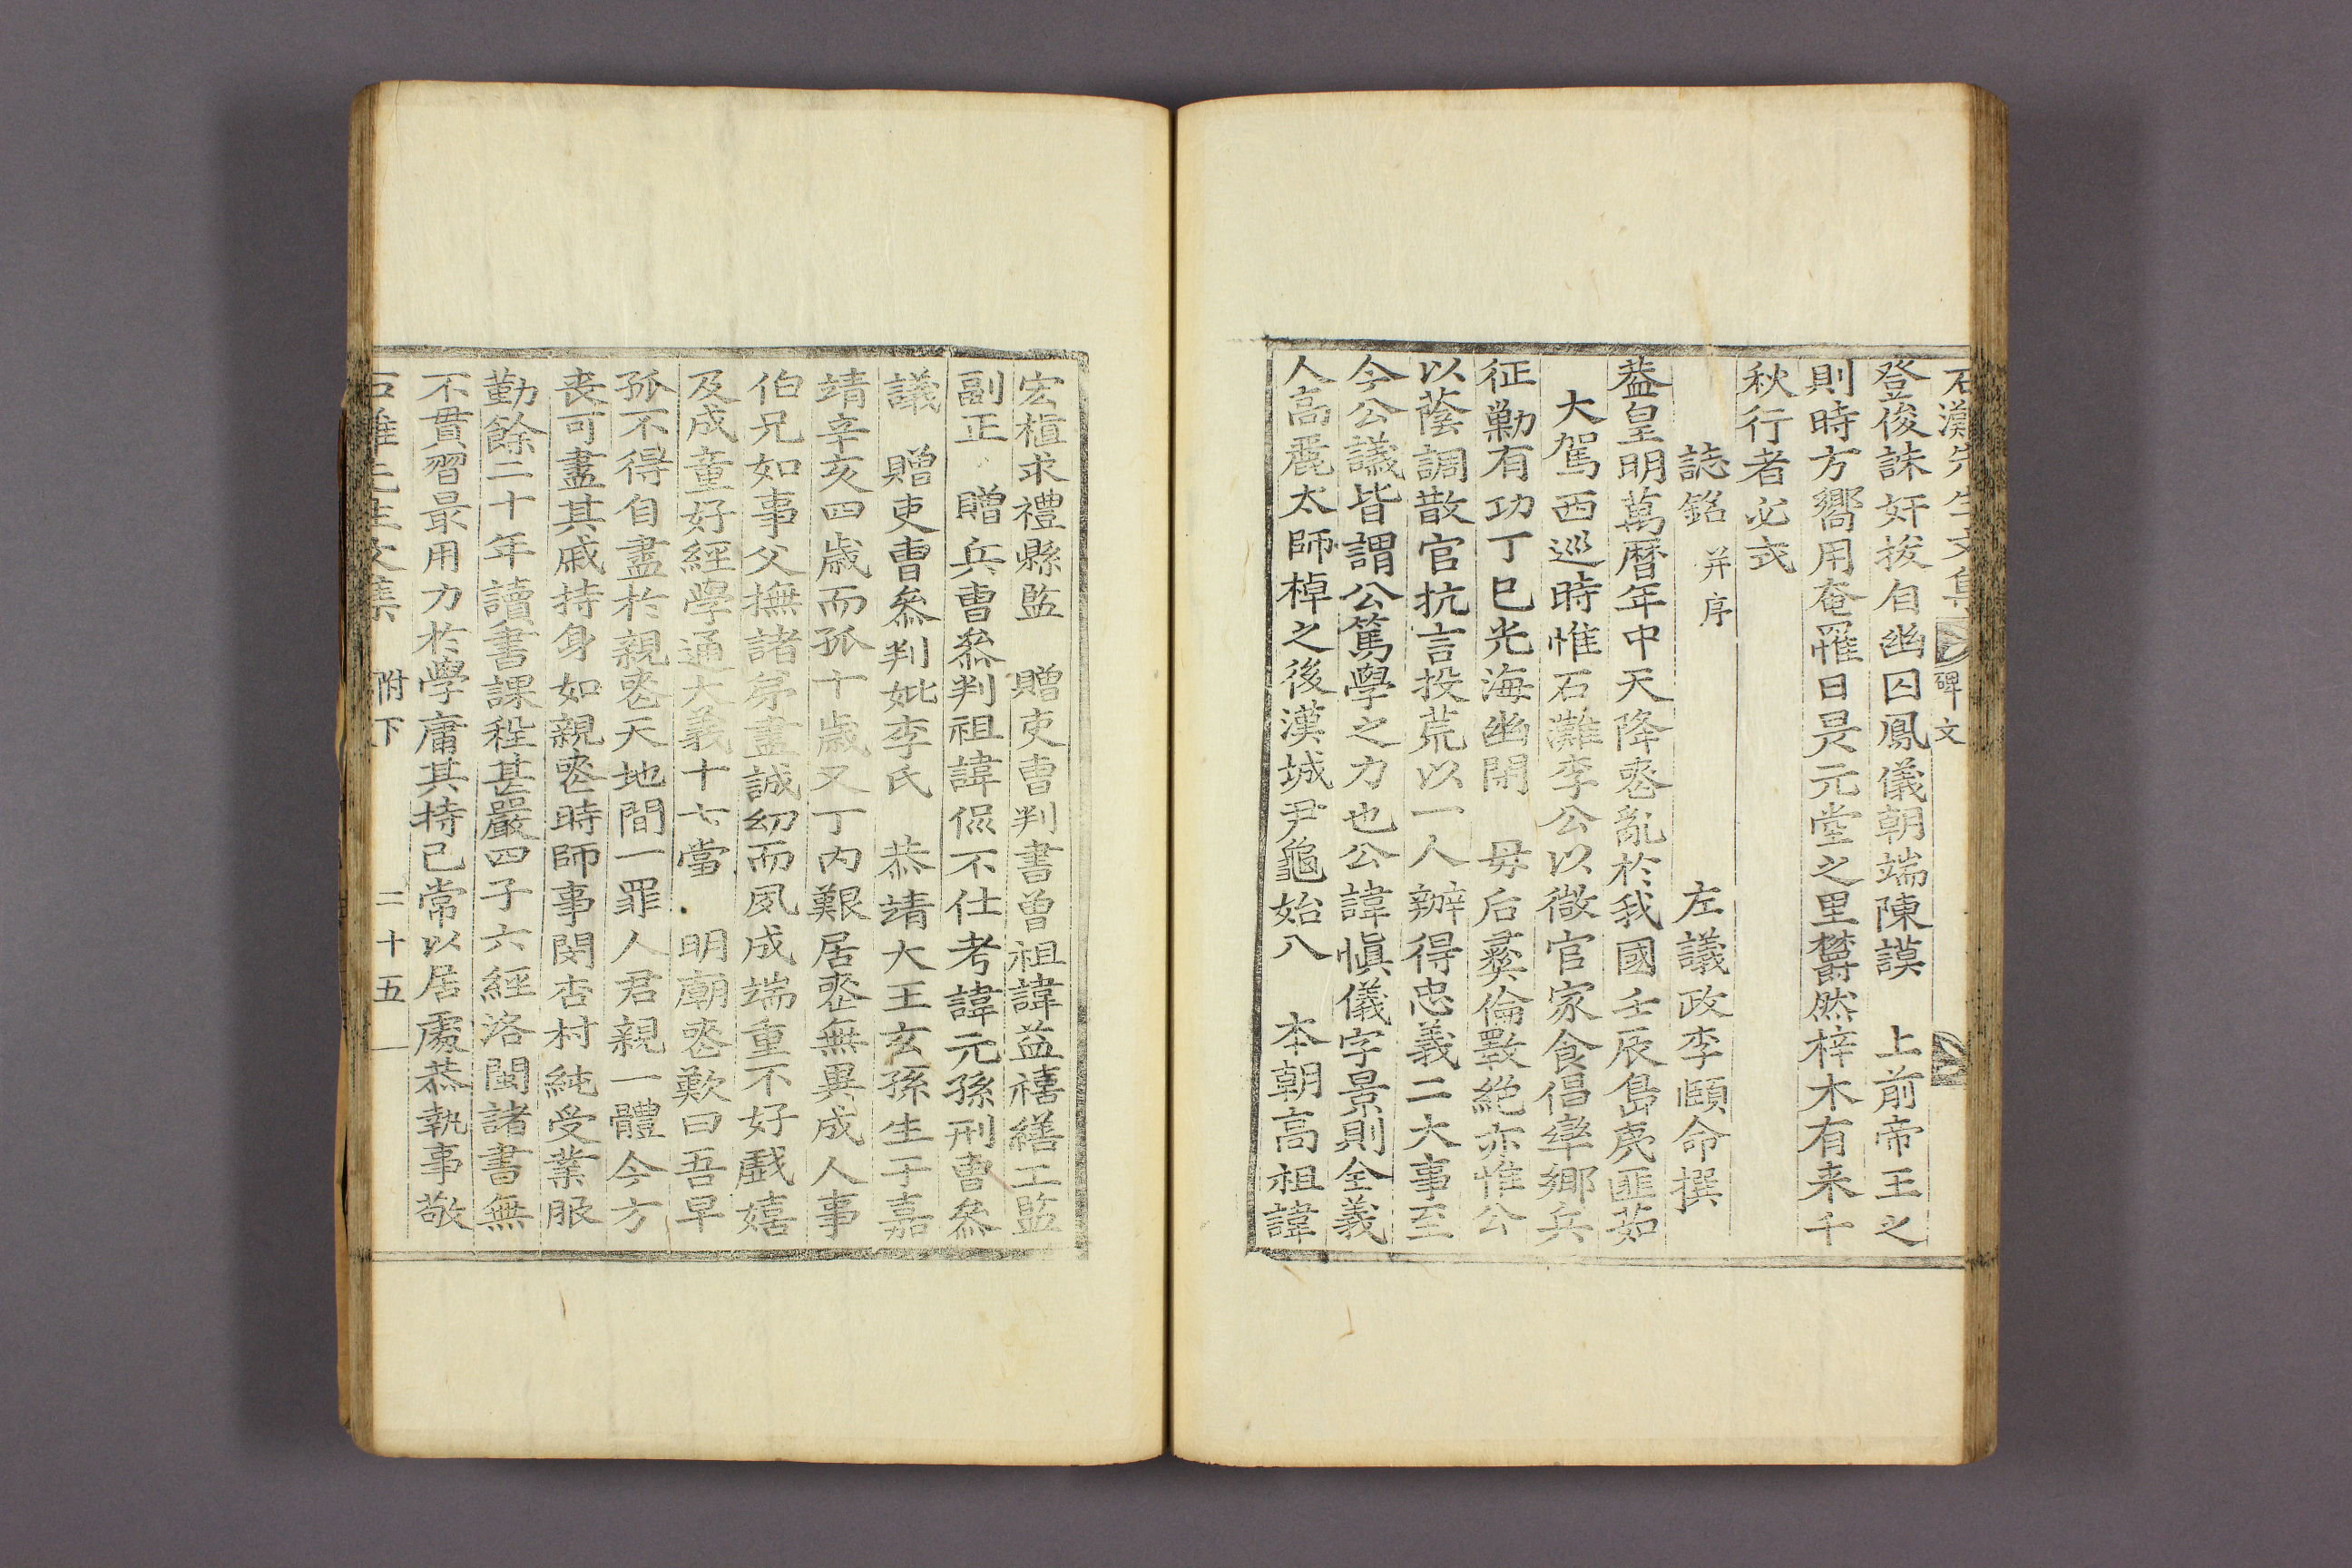 石灘先生文集 碑文
登後誅奸拔自幽囚鳳儀朝端陳謨 上前帝王之
則時方嚮用奄罹日昃元堂之里欝然梓木有来千
秋行者必式
誌銘 并序
左議政李頤命撰
葢皇明萬曆年中天降喪亂於我國壬辰島夷匪茹
大駕西巡時惟石灘李公以微官家食倡率鄉兵
征勦有功丁巳光海幽閉 母后彛倫斁絶亦惟公
以蔭調散官抗言投荒以一人辦得忠義二大事至
今公議皆謂公篤學之力也公諱愼儀字景則全義
人高麗太師棹之後漢城尹龜始入 本朝高祖諱
宏植求禮縣監 贈吏曹判書曾祖諱益禧繕工監
副正 贈兵曹叅判祖諱 不仕考諱元孫刑曹叅
議 贈吏曹叅判妣李氏 恭靖大王玄孫生于嘉
靖辛亥四歲而孤十歲又丁內艱居喪無異成人事
伯兄如事父撫諸弟盡誠幼而夙成端重不好戲嬉
及成童好經學通大義十七當 明廟喪歎曰吾早
孤不得自盡於親喪天地間一罪人君親一體今方
喪可盡其戚持身如親喪時師事閔杏村純受業服
勤餘二十年讀書課程甚嚴四子六經洛閩諸書無
不貫習最用力於學庸其持己常以居處恭執事敬
石灘先生文集 附下 二十五